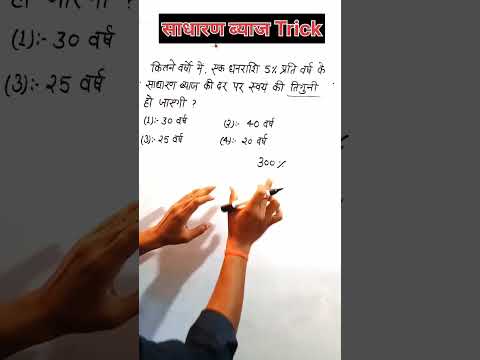 साधारण ब्याज Trick
कितने वर्षो में, एक धनराशि 5% प्रति वर्ष के
साधारण ब्याज की दर पर स्वयं की तिगुनी
हो जाएगी ?
(1):- 30 वर्ष (2):- 40 वर्ष
(3):- 25 वर्ष (4):- 20 वर्ष
300 %
(1):- 30 वर्ष
(3):- 25 वर्ष